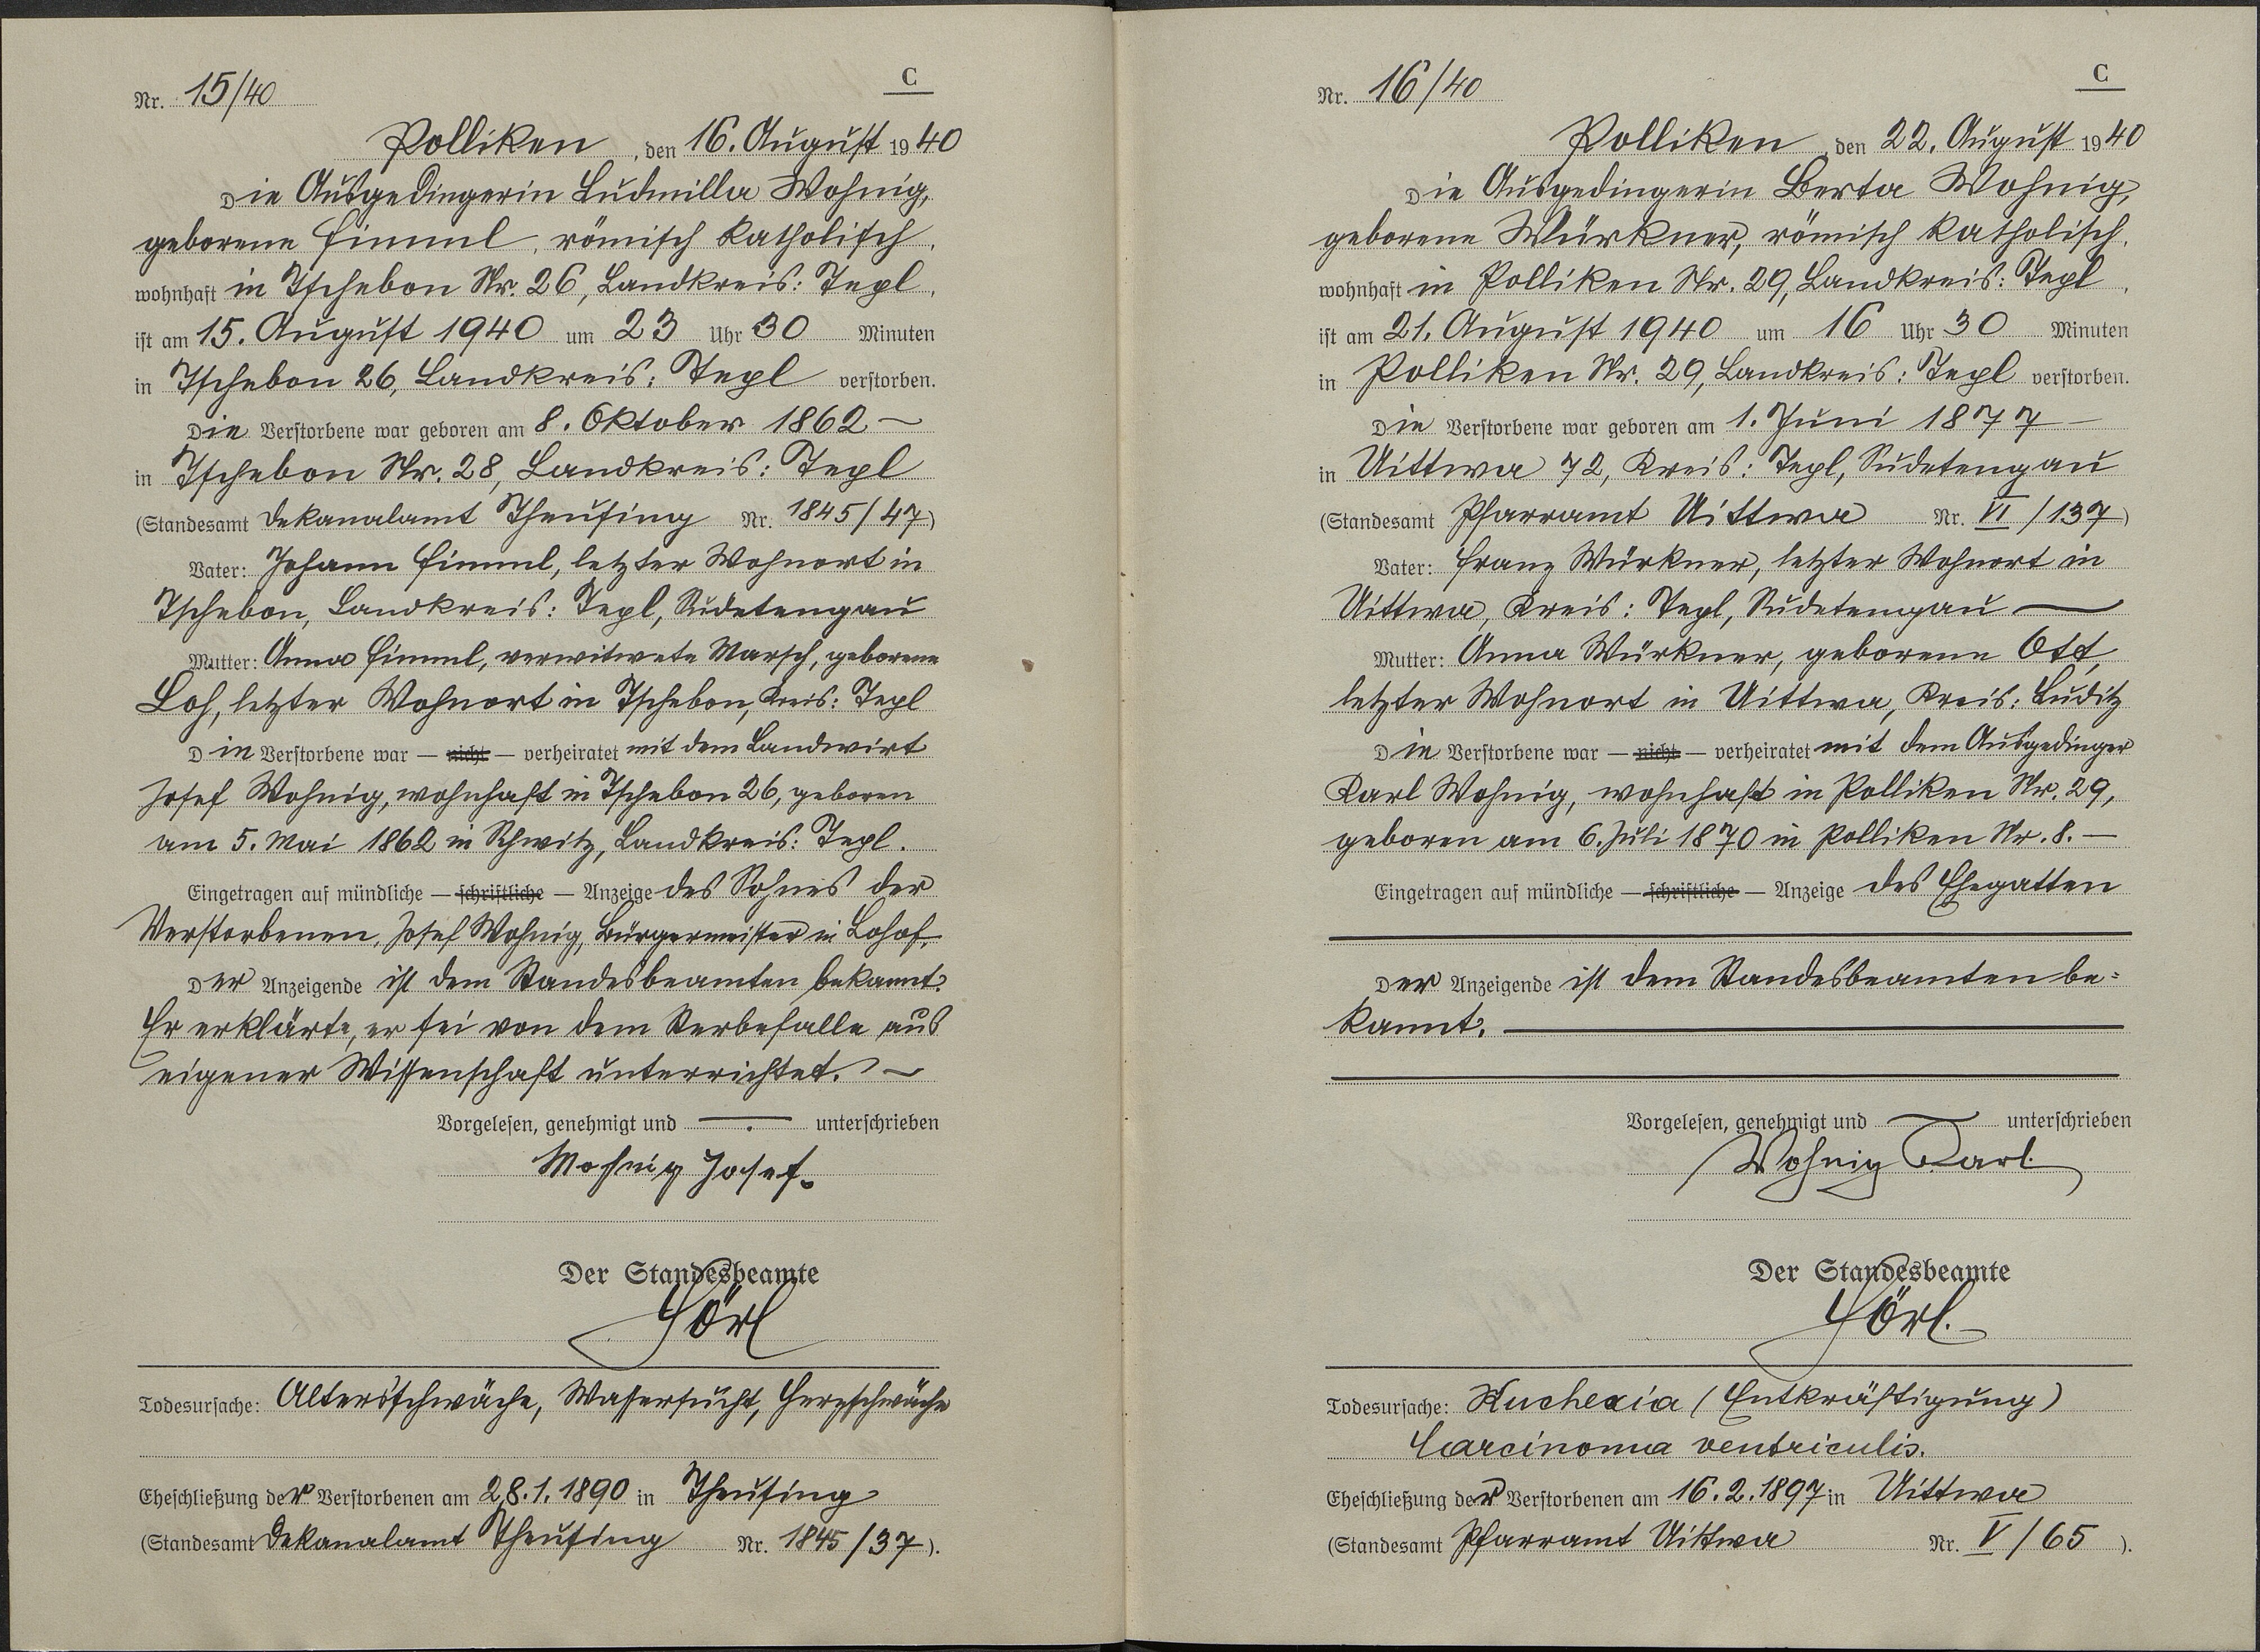 C
Nr. 15/40
Polliken, den 16. August 1940
Die Ausgedingerin Ludmilla Wohnig,
geborene Fimml, römisch katholisch,
wohnhaft in Tschebon Nr. 26, Landkreis: Tepl,
ist am 15. August 1940 um 23 Uhr 30 Minuten
in Tschebon 26, Landkreis: Tepl verstorben.
Die Verstorbene war geboren am 8. Oktober 1862 —
in Tschebon Nr. 28, Landkreis: Tepl
(Standesamt Dekanalamt Theusing Nr. 1845/47)
Vater: Johann Fimml, letzter Wohnort in
Tschebon, Landkreis: Tepl, Sudetengau
Mutter: Anna Fimml, verwitwete Marsch, geborene
Loh, letzter Wohnort in Tschebon, Kreis: Tepl
Die Verstorbene war — nicht — verheiratet mit dem Landwirt
Josef Wohnig, wohnhaft in Tschebon 26, geboren
am 5. Mai 1862 in Schwitz, Landkreis: Tepl.
Eingetragen auf mündliche — schriftliche — Anzeige des Sohnes der
Verstorbenen, Josef Wohnig, Bürgermeister in Lohof.
Der Anzeigende ist dem Standesbeamten bekannt.
Er erklärte, er sei von dem Sterbefalle aus
eigener Wissenschaft unterrichtet. —
Vorgelesen, genehmigt und — unterschrieben
Wohnig Josef.
Der Standesbeamte
Hörl
Todesursache: Altersschwäche, Wassersucht, Herzschwäche
Eheschließung der Verstorbenen am 28.1.1890 in Theusing
(Standesamt Dekanalamt Theusing Nr. 1845/37).
C
Nr. 16/40
Polliken, den 22. August 1940
Die Ausgedingerin Berta Wohnig,
geborene Würkner, römisch katholisch,
wohnhaft in Polliken Nr. 29, Landkreis: Tepl,
ist am 21. August 1940 um 16 Uhr 30 Minuten
in Polliken Nr. 29, Landkreis: Tepl verstorben.
Die Verstorbene war geboren am 1. Juni 1877 —
in Uittwa 72, Kreis: Tepl, Sudetengau
(Standesamt Pfarramt Uittwa Nr. VI/137)
Vater: Franz Würkner, letzter Wohnort in
Uittwa, Kreis: Tepl, Sudetengau —
Mutter: Anna Würkner, geborene Ott,
letzter Wohnort in Uittwa, Kreis: Luditz
Die Verstorbene war — nicht — verheiratet mit dem Ausgedinger
Karl Wohnig, wohnhaft in Polliken Nr. 29,
geboren am 6. Juli 1870 in Polliken Nr. 8. —
Eingetragen auf mündliche — schriftliche — Anzeige des Ehegatten
Der Anzeigende ist dem Standesbeamten be=
kannt. —
Vorgelesen, genehmigt und — unterschrieben
Wohnig Karl
Der Standesbeamte
Hörl.
Todesursache: Kuchexia (Entkräftigung)
Carcinoma ventriculis.
Eheschließung der Verstorbenen am 16.2.1897 in Uittwa
(Standesamt Pfarramt Uittwa Nr. V/65).